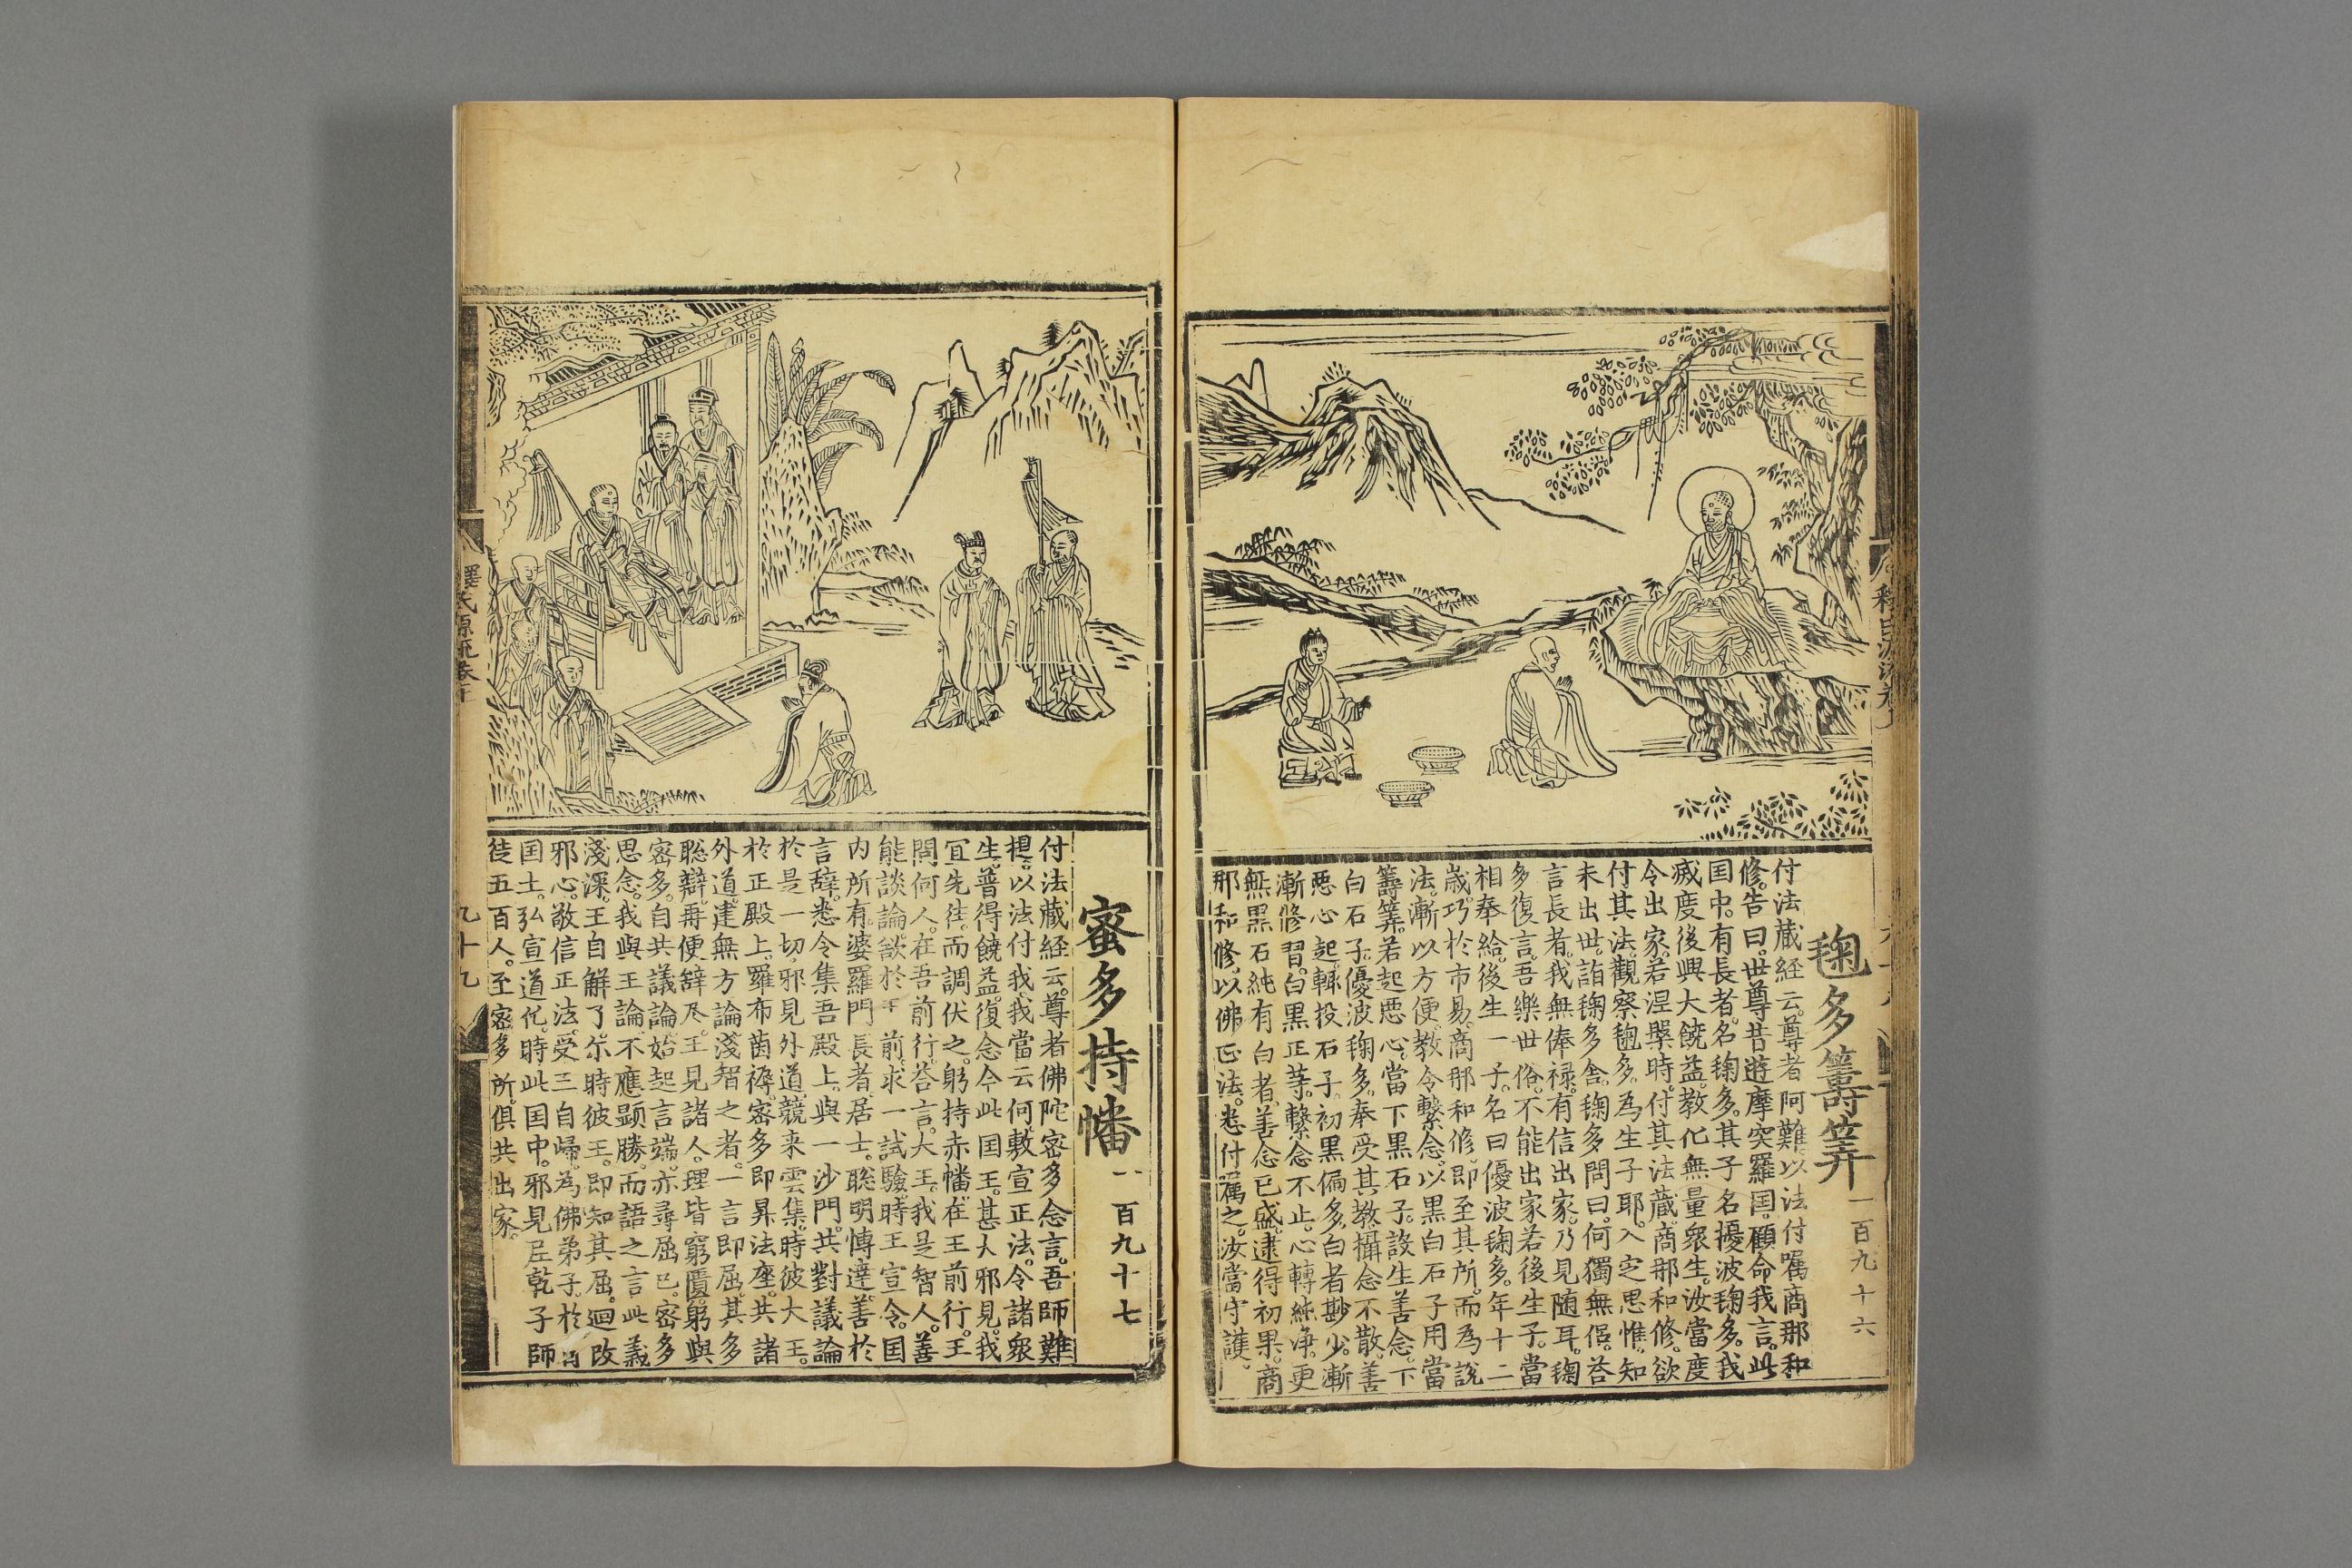 毱多籌筭 一百九十六
付法蔵経云。尊者阿難。以法付嘱商那和
修。告曰。世尊昔遊摩突羅国。顧命我言。此
国中。有長者。名毱多。其子名擾波毱多。我
滅度後。興大饒益。教化無量衆生。汝當度
令出家。若涅槃時。付其法蔵。商那和修。欲
付其法。觀察毱多。為生子耶。入定思惟。知
未出世。詣毱多舍。毱多問曰。何獨無侶。荅
言長者。我無俸禄。有信出家。乃見随耳。毱
多復言。吾樂世俗。不能出家。若後生子。當
相奉給。後生一子。名曰優波毱多。年十二
歳。巧於市易。商那和修。即至其所。而為說
法。漸以方便。教令繫念。以黒白石子。用當
籌筭。若起悪心。當下黒石子。設生善念。下
白石子。優波毱多。奉受其教。攝念不散。善
悪心起。輙投石子。初黒偏多。白者尠少。漸
漸修習。白黒正等。繫念不止。心轉純淨。更
無黒石。純有白者。善念已盛。逮得初果。商
那和修。以佛正法。悉付嘱之。汝當守護。
蜜多持幡 一百九十七
付法蔵経云。尊者佛陀密多。念言。吾師難
提。以法付我。我當云何。敷宣正法。令諸衆
生。普得饒益。復念今此国王。甚大邪見。我
宜先往。而調伏之。躬持赤幡。在王前行。王
問何人。在吾前行。荅言。大王。我是智人。善
能談論。欲於王前。求一試驗。時王宣令。国
内所有。婆羅門。長者。居士。聡明博達。善於
言辞。悉令集吾殿上。與一沙門。共對議論
於是一切。邪見外道。競来雲集。時彼大王。
於正殿上。羅布茵褥。密多即昇法座。共諸
外道。建無方論。淺智之者。一言即屈。其多
聡辯。再便辞尽。王見諸人。理皆窮匱。躬與
密多。自共議論。始起言端。亦尋屈已。密多
思念。我與王論。不應顕勝。而語之言。此義
淺深。王自解了。尓時彼王。即知其屈。廻改
邪心。敬信正法。受三自歸。為佛弟子。於
国土。弘宣道化。時此国中。邪見尼乾子師
徒五百人。至密多所。俱共出家。
釋氏源流巻下
九十九